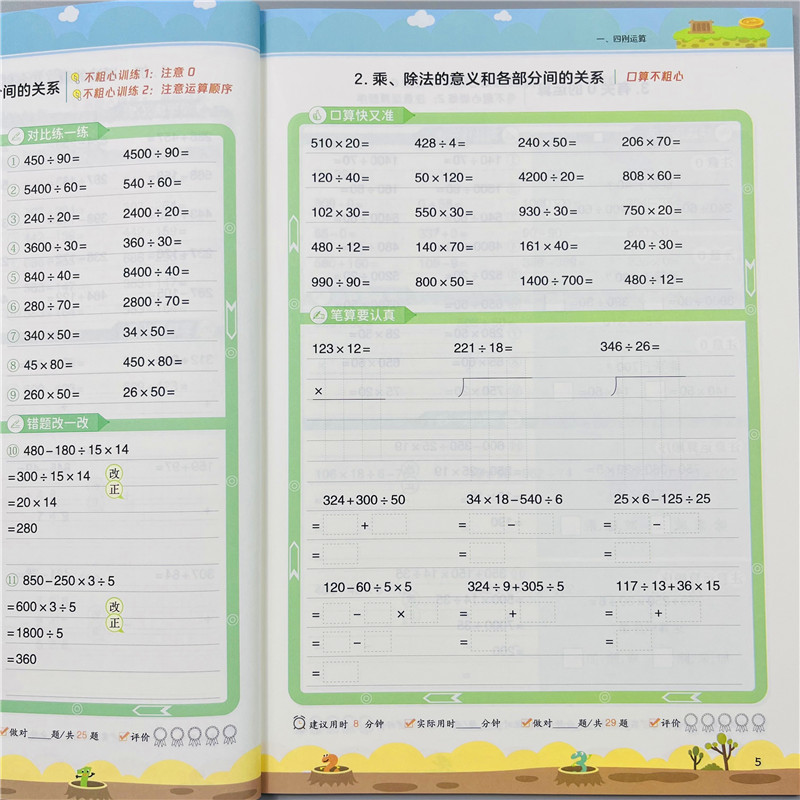 间的关系
不粗心训练 1：注意 0
不粗心训练 2：注意运算顺序
对比练一练
① 450÷90= 4500÷90=
② 5400÷60= 540÷60=
③ 240÷20= 2400÷20=
④ 3600÷30= 360÷30=
⑤ 840÷40= 8400÷40=
⑥ 280÷70= 2800÷70=
⑦ 340×50= 34×50=
⑧ 45×80= 450×80=
⑨ 260×50= 26×50=
错题改一改
⑩ 480-180÷15×14
=300÷15×14
改正
=20×14
=280
⑪ 850-250×3÷5
=600×3÷5
改正
=1800÷5
=360
做对 题/共 25 题 评价
一、四则运算
2. 乘、除法的意义和各部分间的关系 口算不粗心
口算快又准
510×20= 428÷4= 240×50= 206×70=
120÷40= 50×120= 4200÷20= 808×60=
102×30= 550×30= 930÷30= 750×20=
480÷12= 140×70= 161×40= 240÷30=
990÷90= 800×50= 1400÷700= 480÷12=
笔算要认真
123×12= 221÷18= 346÷26=
×
324+300÷50 34×18-540÷6 25×6-125÷25
= + = - = -
= = =
120-60÷5×5 324÷9+305÷5 117÷13+36×15
= - × = + = +
= - = =
=
建议用时 8 分钟 实际用时 分钟 做对 题/共 29 题 评价
5